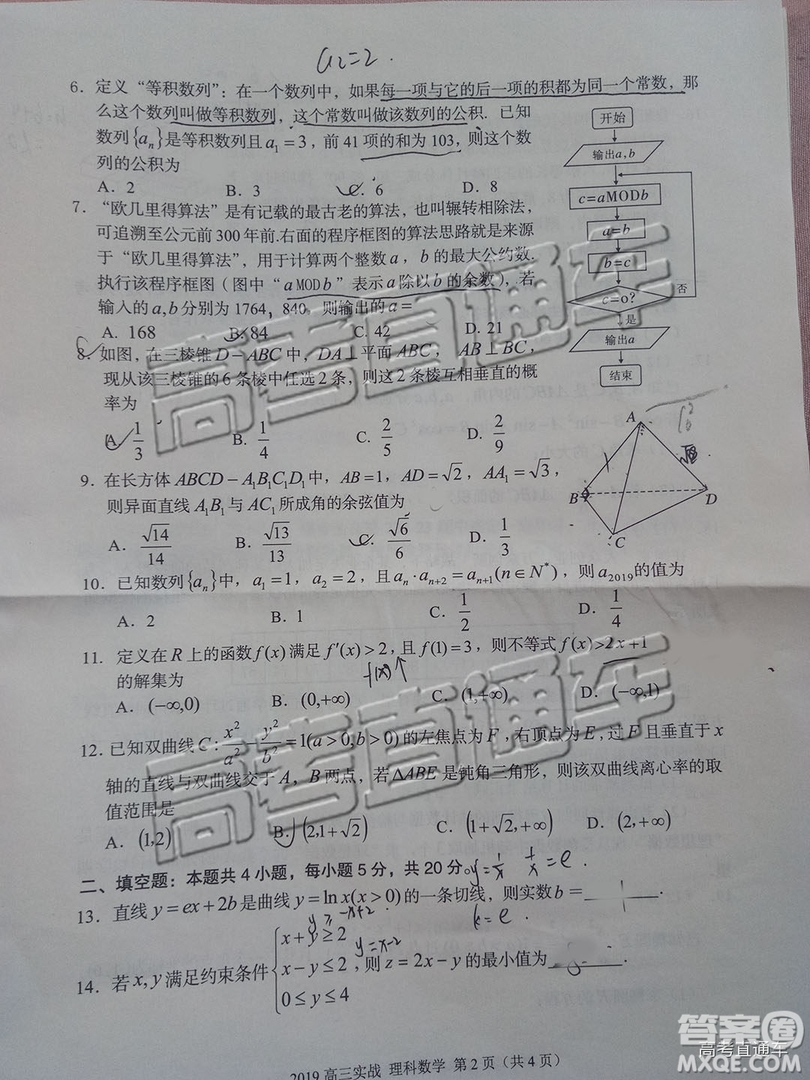 a₂=2.
6. 定义“等积数列”：在一个数列中，如果每一项与它的后一项的积都为同一个常数，那
么这个数列叫做等积数列，这个常数叫做该数列的公积．已知
数列{aₙ}是等积数列且a₁=3，前41项的和为103，则这个数
列的公积为
A．2 B．3 C．6 D．8
7. “欧几里得算法”是有记载的最古老的算法，也叫辗转相除法，
可追溯至公元前300年前.右面的程序框图的算法思路就是来源
于“欧几里得算法”，用于计算两个整数a，b的最大公约数.
执行该程序框图（图中“aMODb”表示a除以b的余数），若
输入的a,b分别为1764，840，则输出的a=
A. 168 B. 84 C. 42 D. 21
开始
输出a,b
c=aMODb
a=b
b=c
c=0?
否
是
输出a
结束
8. 如图，在三棱锥D-ABC中，DA⊥平面ABC，AB⊥BC，
现从该三棱锥的6条棱中任选2条，则这2条棱互相垂直的概
率为
A. 1/3 B. 1/4 C. 2/5 D. 2/9
A
B
C
D
9. 在长方体ABCD-A₁B₁C₁D₁中，AB=1，AD=√2，AA₁=√3，
则异面直线A₁B₁与AC₁所成角的余弦值为
A. √14/14 B. √13/13 C. √6/6 D. 1/3
10. 已知数列{aₙ}中，a₁=1，a₂=2，且aₙ·aₙ₊₂=aₙ₊₁(n∈N*)，则a₂₀₁₉的值为
A. 2 B. 1 C. 1/2 D. 1/4
11. 定义在R上的函数f(x)满足f′(x)>2，且f(1)=3，则不等式f(x)>2x+1
的解集为
f(x)↑
A. (-∞,0) B. (0,+∞) C. (1,+∞) D. (-∞,1)
12. 已知双曲线C：x²/a²-y²/b²=1(a>0,b>0)的左焦点为F，右顶点为E，过F且垂直于x
轴的直线与双曲线交于A，B两点，若△ABE是钝角三角形，则该双曲线离心率的取
值范围是
A. (1,2) B. (2,1+√2) C. (1+√2,+∞) D. (2,+∞)
二、填空题：本题共4小题，每小题5分，共20分。
y=1/x 1/x=e
13. 直线y=ex+2b是曲线y=lnx(x>0)的一条切线，则实数b=
k=e
y≥-x+2
y=x-2
14. 若x,y满足约束条件{x+y≥2
x-y≤2
0≤y≤4
，则z=2x-y的最小值为
2019高三实战 理科数学 第2页（共4页）
高考直通车
高考直通车
高考直通车
答案圈
MXQE.COM